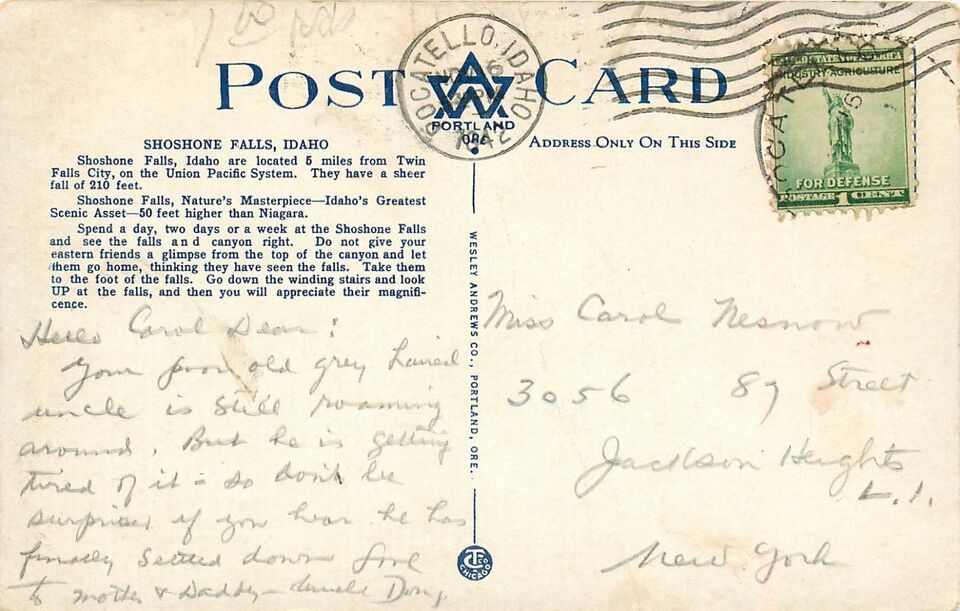 POST CARD
POCATELLO, IDAHO
1942
AW
PORTLAND
ORE.
UNITED STATES OF AMERICA
INDUSTRY-AGRICULTURE
FOR DEFENSE
POSTAGE 1 CENT
ADDRESS ONLY ON THIS SIDE
SHOSHONE FALLS, IDAHO
Shoshone Falls, Idaho are located 5 miles from Twin
Falls City, on the Union Pacific System. They have a sheer
fall of 210 feet.
Shoshone Falls, Nature's Masterpiece—Idaho's Greatest
Scenic Asset—50 feet higher than Niagara.
Spend a day, two days or a week at the Shoshone Falls
and see the falls and canyon right. Do not give your
eastern friends a glimpse from the top of the canyon and let
them go home, thinking they have seen the falls. Take them
to the foot of the falls. Go down the winding stairs and look
UP at the falls, and then you will appreciate their magnifi-
cence.
Hello Carol Dear:
Your poor old grey haired
uncle is still roaming
around. But he is getting
tired of it - so don't be
surprised if you hear he has
finally settled down love
to mother & Daddy - Uncle
WESLEY ANDREWS CO., PORTLAND, ORE.
CHICAGO
Miss Carol Nesnow
3056 87 Street
Jackson Heights
L.I.
New York